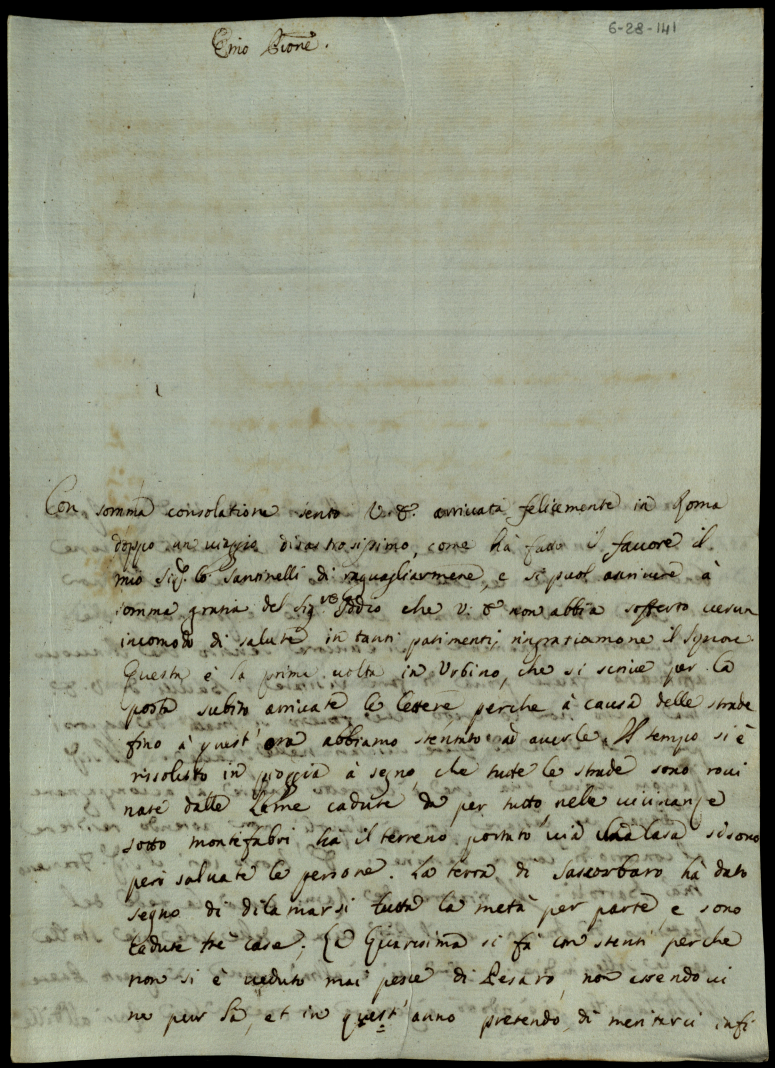 6-28-141
Con somma consolatione sento V. E. arrivata felicemente in Roma
doppo un viaggio disastrosissimo, come hà fatto il favore il
mio Sigr. Co. Santinelli di raguagliarmene, e si puol ascrivere à
somma gratia del Sigre Iddio che V. E. non abbia sofferto verun
incomodo di salute in tanti patimenti, ringratiamone il Signore.
Questa è la prima volta in Urbino, che si scrive per la
posta subito arrivate le lettere perche à causa delle strade
fino à quest'ora abbiamo stentato ad averle. Il tempo si è
rissoluto in pioggia à segno, che tutte le strade sono rovi
nate dalle Lame cadute da per tutto, nelle vicinanze
sotto montefabri hà il terreno portato via una Casa si sono
però salvate le persone. La terra di Sascorbaro hà dato
segno di dilamarsi tutta la metà per parte e sono
cadute trè case; La Quaresima si fà con stenti perche
non si è veduto mai pesce di Pesaro, non essendovi
ne pur là, et in quest'anno pretendo di meritarci infi